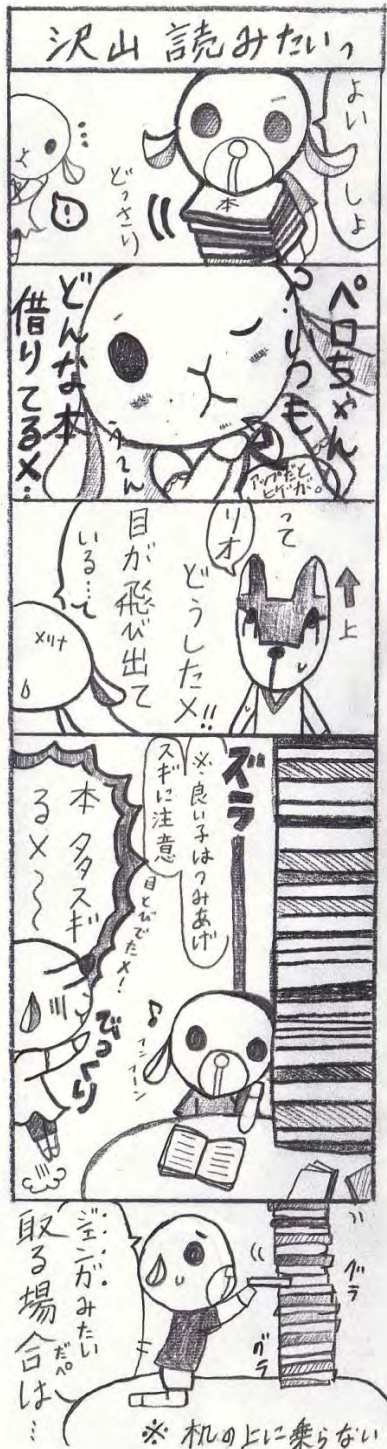 沢山 読みたいっ
よいしょ
本
どっさり
…
!
ペロちゃん
いつも
どんな本
借りてるメ…
うーん
アップだと
ヒゲが。
って
リオ
どうしたメ!!
目が飛び出て
いる…て
↑上
メリナ
ズラ
※良い子はつみあげ
スギに注意
目とびでたメ!
本タタスギ
るメ〜〜
びっくり
♪フンフーン
グラ
グラ
ジェンガみたい
だペ
取る場合は…
※ 机の上に乗らない